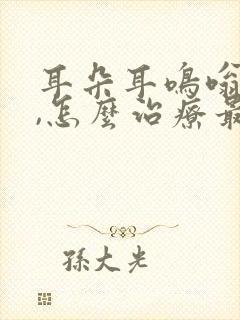 耳朵耳鳴嗡
,怎麼治療最
孫大光